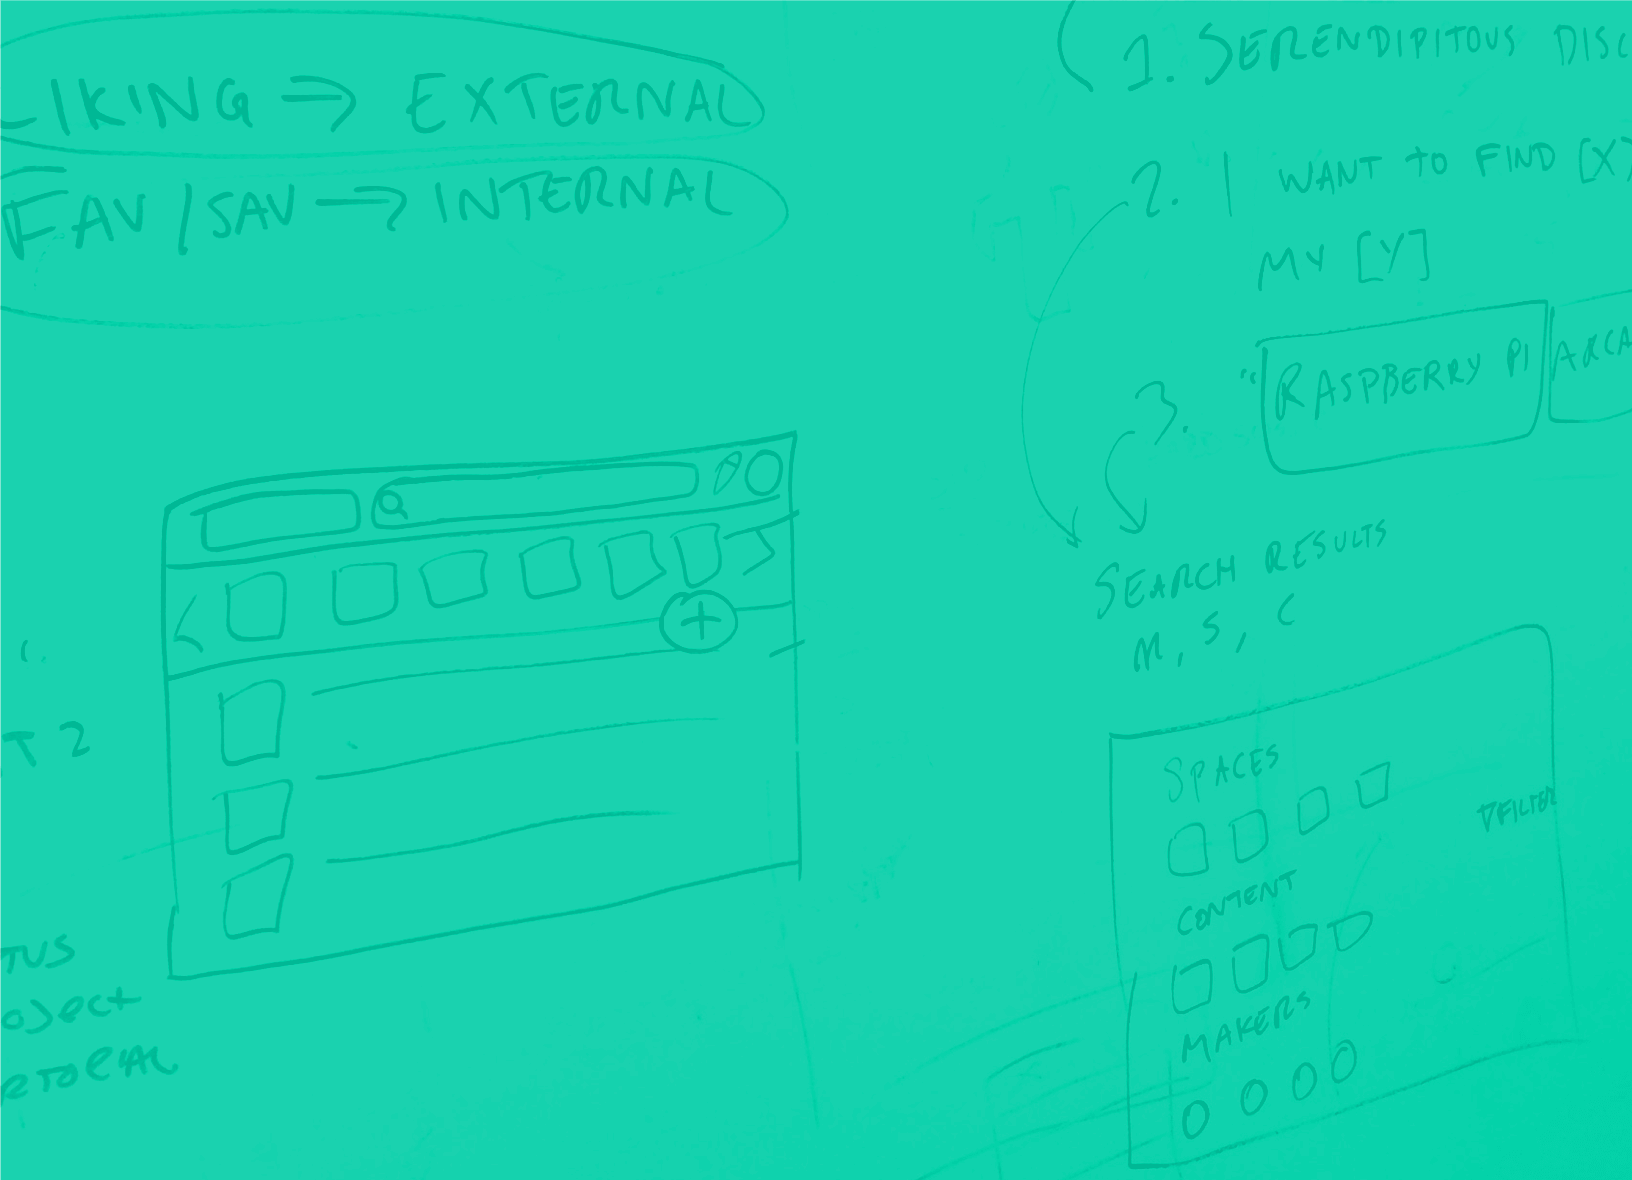 LIKING → EXTERNAL
FAV/SAV → INTERNAL
1. SERENDIPITOUS DISC
2. I WANT TO FIND [X]
MY [Y]
3. "RASPBERRY PI ARCA
SEARCH RESULTS
M, S, C
SPACES
▽FILTER
CONTENT
MAKERS
T 2
TUS
OJECT